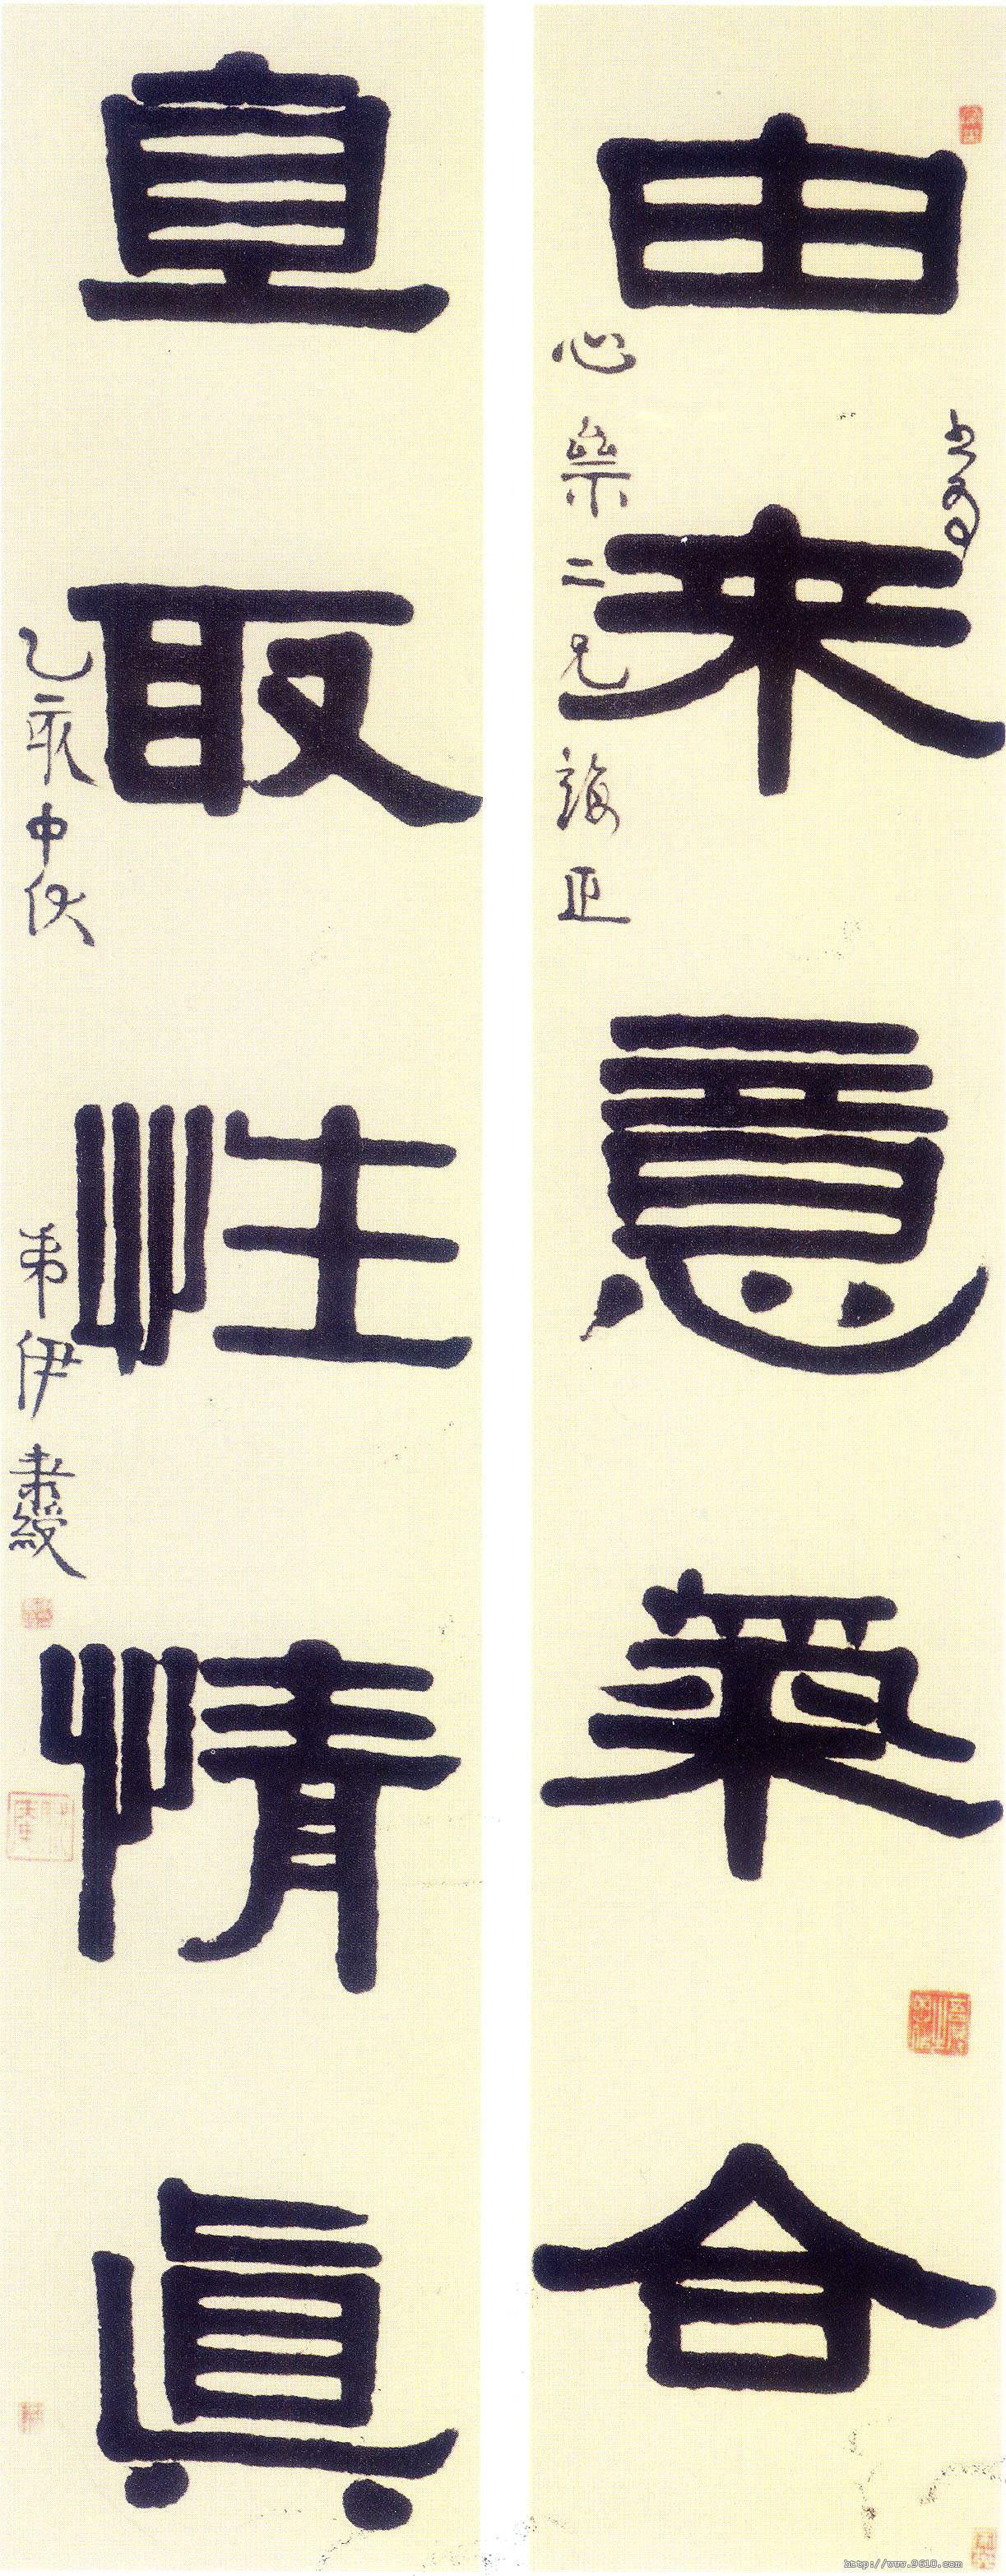 由来意氣合
心崇二兄誨正
直取性情真
乙亥中伏
弟伊秉綬
http://www.9610.com